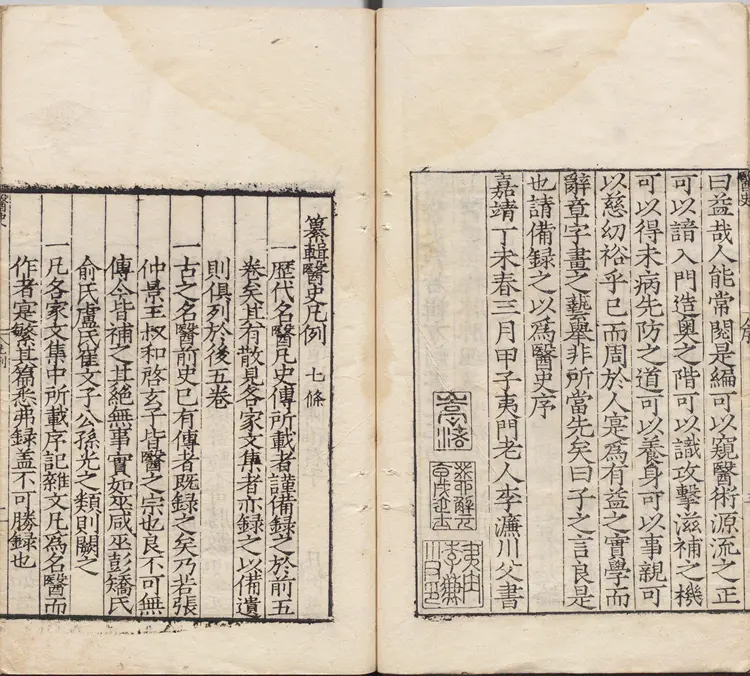 曰益哉人能常閱是編可以窺醫術源流之正
可以諳入門造奧之階可以識攻擊滋補之機
可以得未病先防之道可以養身可以事親可
以慈幼裕乎己而周於人寔爲有益之實學而
辭章字畫之藝舉非所當先矣曰子之言良是
也請備録之以爲醫史序
嘉靖丁未春三月甲子夷門老人李濂川父書
纂輯醫史凡例 七條
一歷代名醫凡史傳所載者謹備録之於前五
卷矣其有散見各家文集者亦録之以備遺
則俱列於後五卷
一古之名醫前史已有傳者既録之矣乃若張
仲景王叔和啓玄子皆醫之宗也良不可無
傳今皆補之其絕無事實如巫咸巫彭矯氏
俞氏盧氏崔文子公孫光之類則闕之
一凡各家文集中所載序記雜文凡爲名醫而
作者寔繁其篇悉弗録盖不可勝録也
醫史